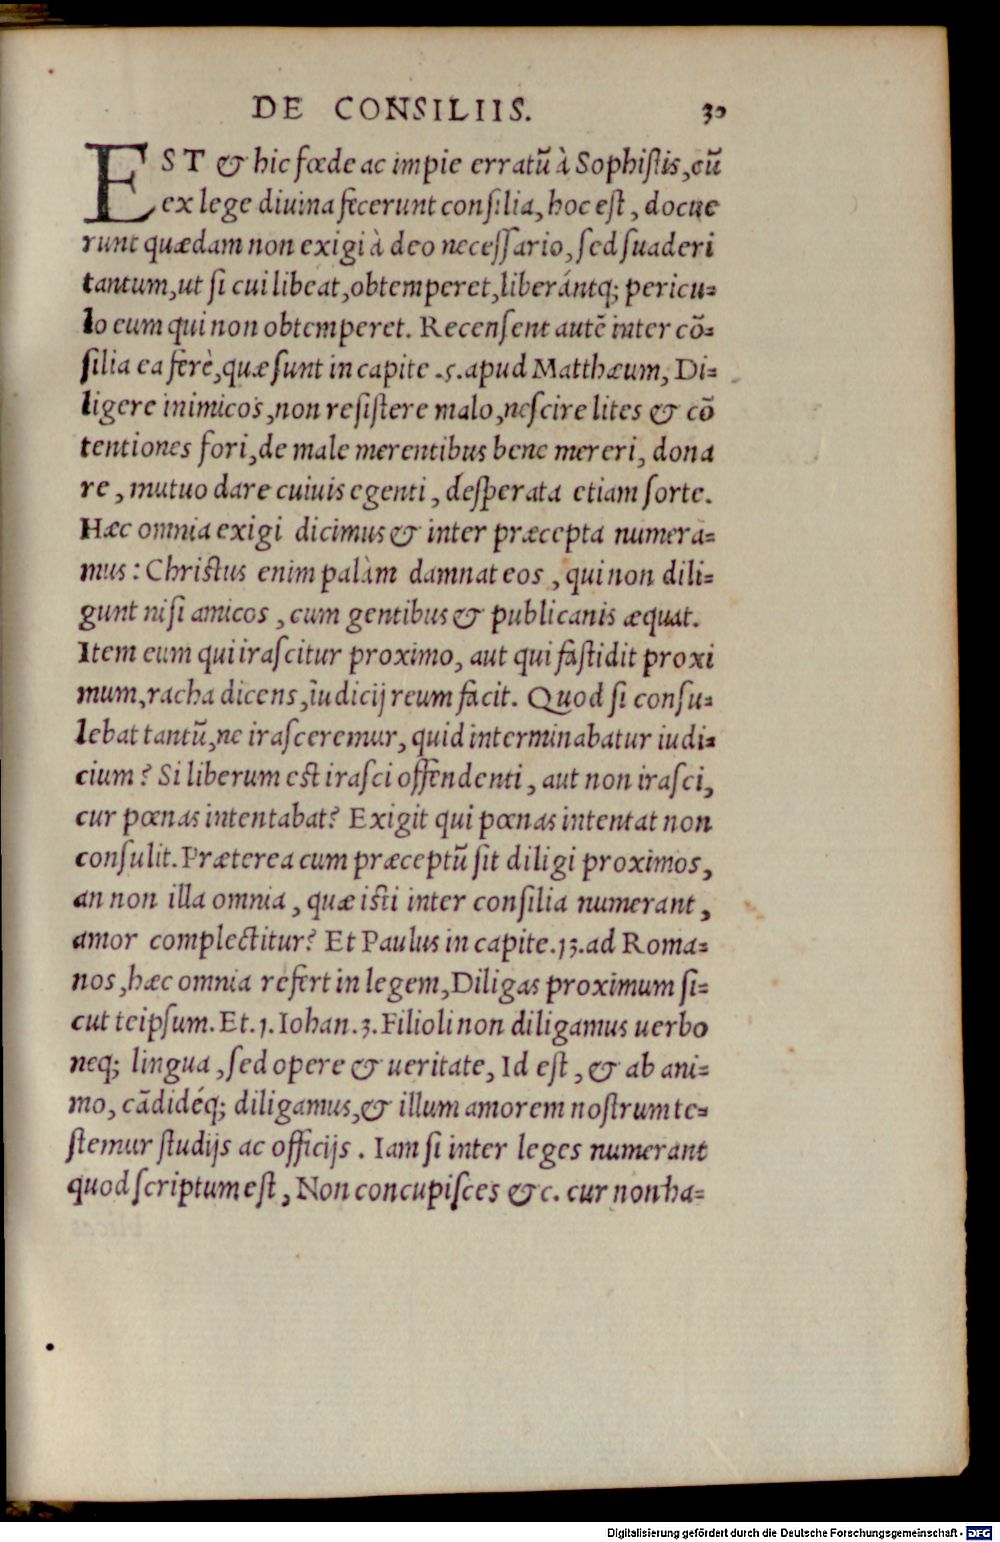 DE CONSILIIS. 30
EST & hic fœde ac impie erratũ à Sophiſtis, cũ
ex lege diuina fecerunt conſilia, hoc eſt, docue
runt quædam non exigi à deo neceſſario, ſed ſuaderi
tantum, ut ſi cui libeat, obtemperet, liberántq; pericu=
lo eum qui non obtemperet. Recenſent autẽ inter cõ=
ſilia ea ferè, quæ ſunt in capite .5. apud Matthæum, Di=
ligere inimicos, non reſiſtere malo, neſcire lites & cõ
tentiones fori, de male merentibus bene mereri, dona
re, mutuo dare cuiuis egenti, deſperata etiam ſorte.
Hæc omnia exigi dicimus & inter præcepta numera=
mus: Chriſtus enim palàm damnat eos, qui non dili=
gunt niſi amicos, cum gentibus & publicanis æquat.
Item eum qui iraſcitur proximo, aut qui faſtidit proxi
mum, racha dicens, iudicij reum facit. Quod ſi conſu=
lebat tantũ, ne iraſceremur, quid interminabatur iudi=
cium? Si liberum eſt iraſci offendenti, aut non iraſci,
cur pœnas intentabat? Exigit qui pœnas intentat non
conſulit. Præterea cum præceptũ ſit diligi proximos,
an non illa omnia, quæ iſti inter conſilia numerant,
amor complectitur? Et Paulus in capite .13. ad Roma=
nos, hæc omnia refert in legem, Diligas proximum ſi=
cut teipſum. Et .1. Iohan. 3. Filioli non diligamus uerbo
neq; lingua, ſed opere & ueritate, Id eſt, & ab ani=
mo, cãdidéq; diligamus, & illum amorem noſtrum te=
ſtemur ſtudijs ac officijs. Iam ſi inter leges numerant
quod ſcriptum eſt, Non concupiſces &c. cur non ha=
Digitalisierung gefördert durch die Deutsche Forschungsgemeinschaft - DFG